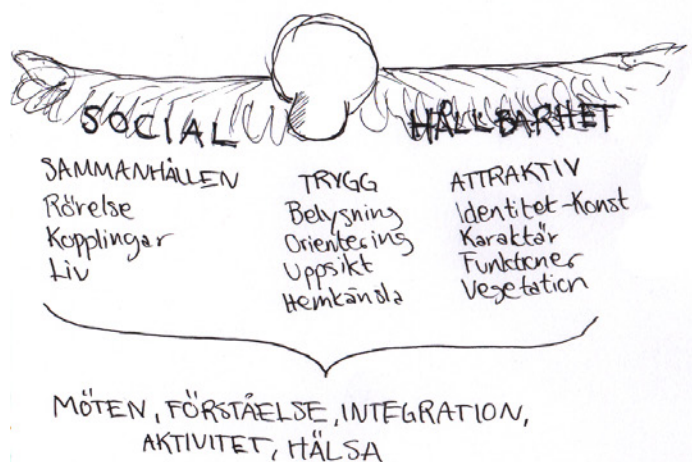 SOCIAL HÅLLBARHET
SAMMANHÅLLEN
Rörelse
Kopplingar
Liv
TRYGG
Belysning
Orientering
Uppsikt
Hemkänsla
ATTRAKTIV
Identitet-Konst
Karaktär
Funktioner
Vegetation
MÖTEN, FÖRSTÅELSE, INTEGRATION,
AKTIVITET, HÄLSA